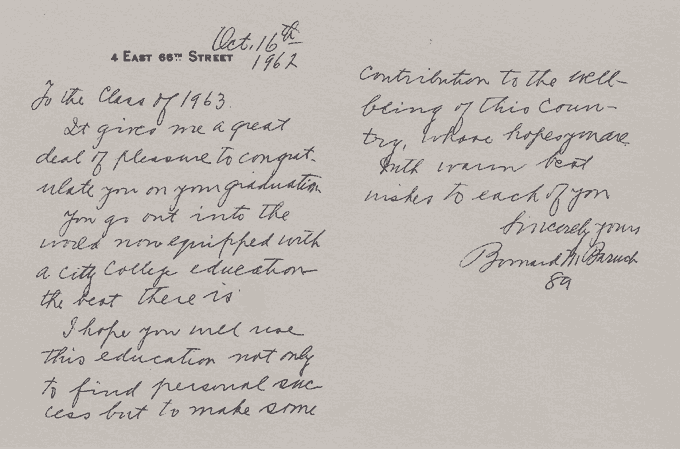 Oct. 16th
1962
4 EAST 66TH STREET
To the Class of 1963.
It gives me a great
deal of pleasure to congrat-
ulate you on your graduation
You go out into the
world now equipped with
a City College education
the best there is
I hope you will use
this education not only
to find personal suc-
cess but to make some
contribution to the well-
being of this coun-
try, whose hopes you are.
With warm best
wishes to each of you
Sincerely yours
Bernard M Baruch
89